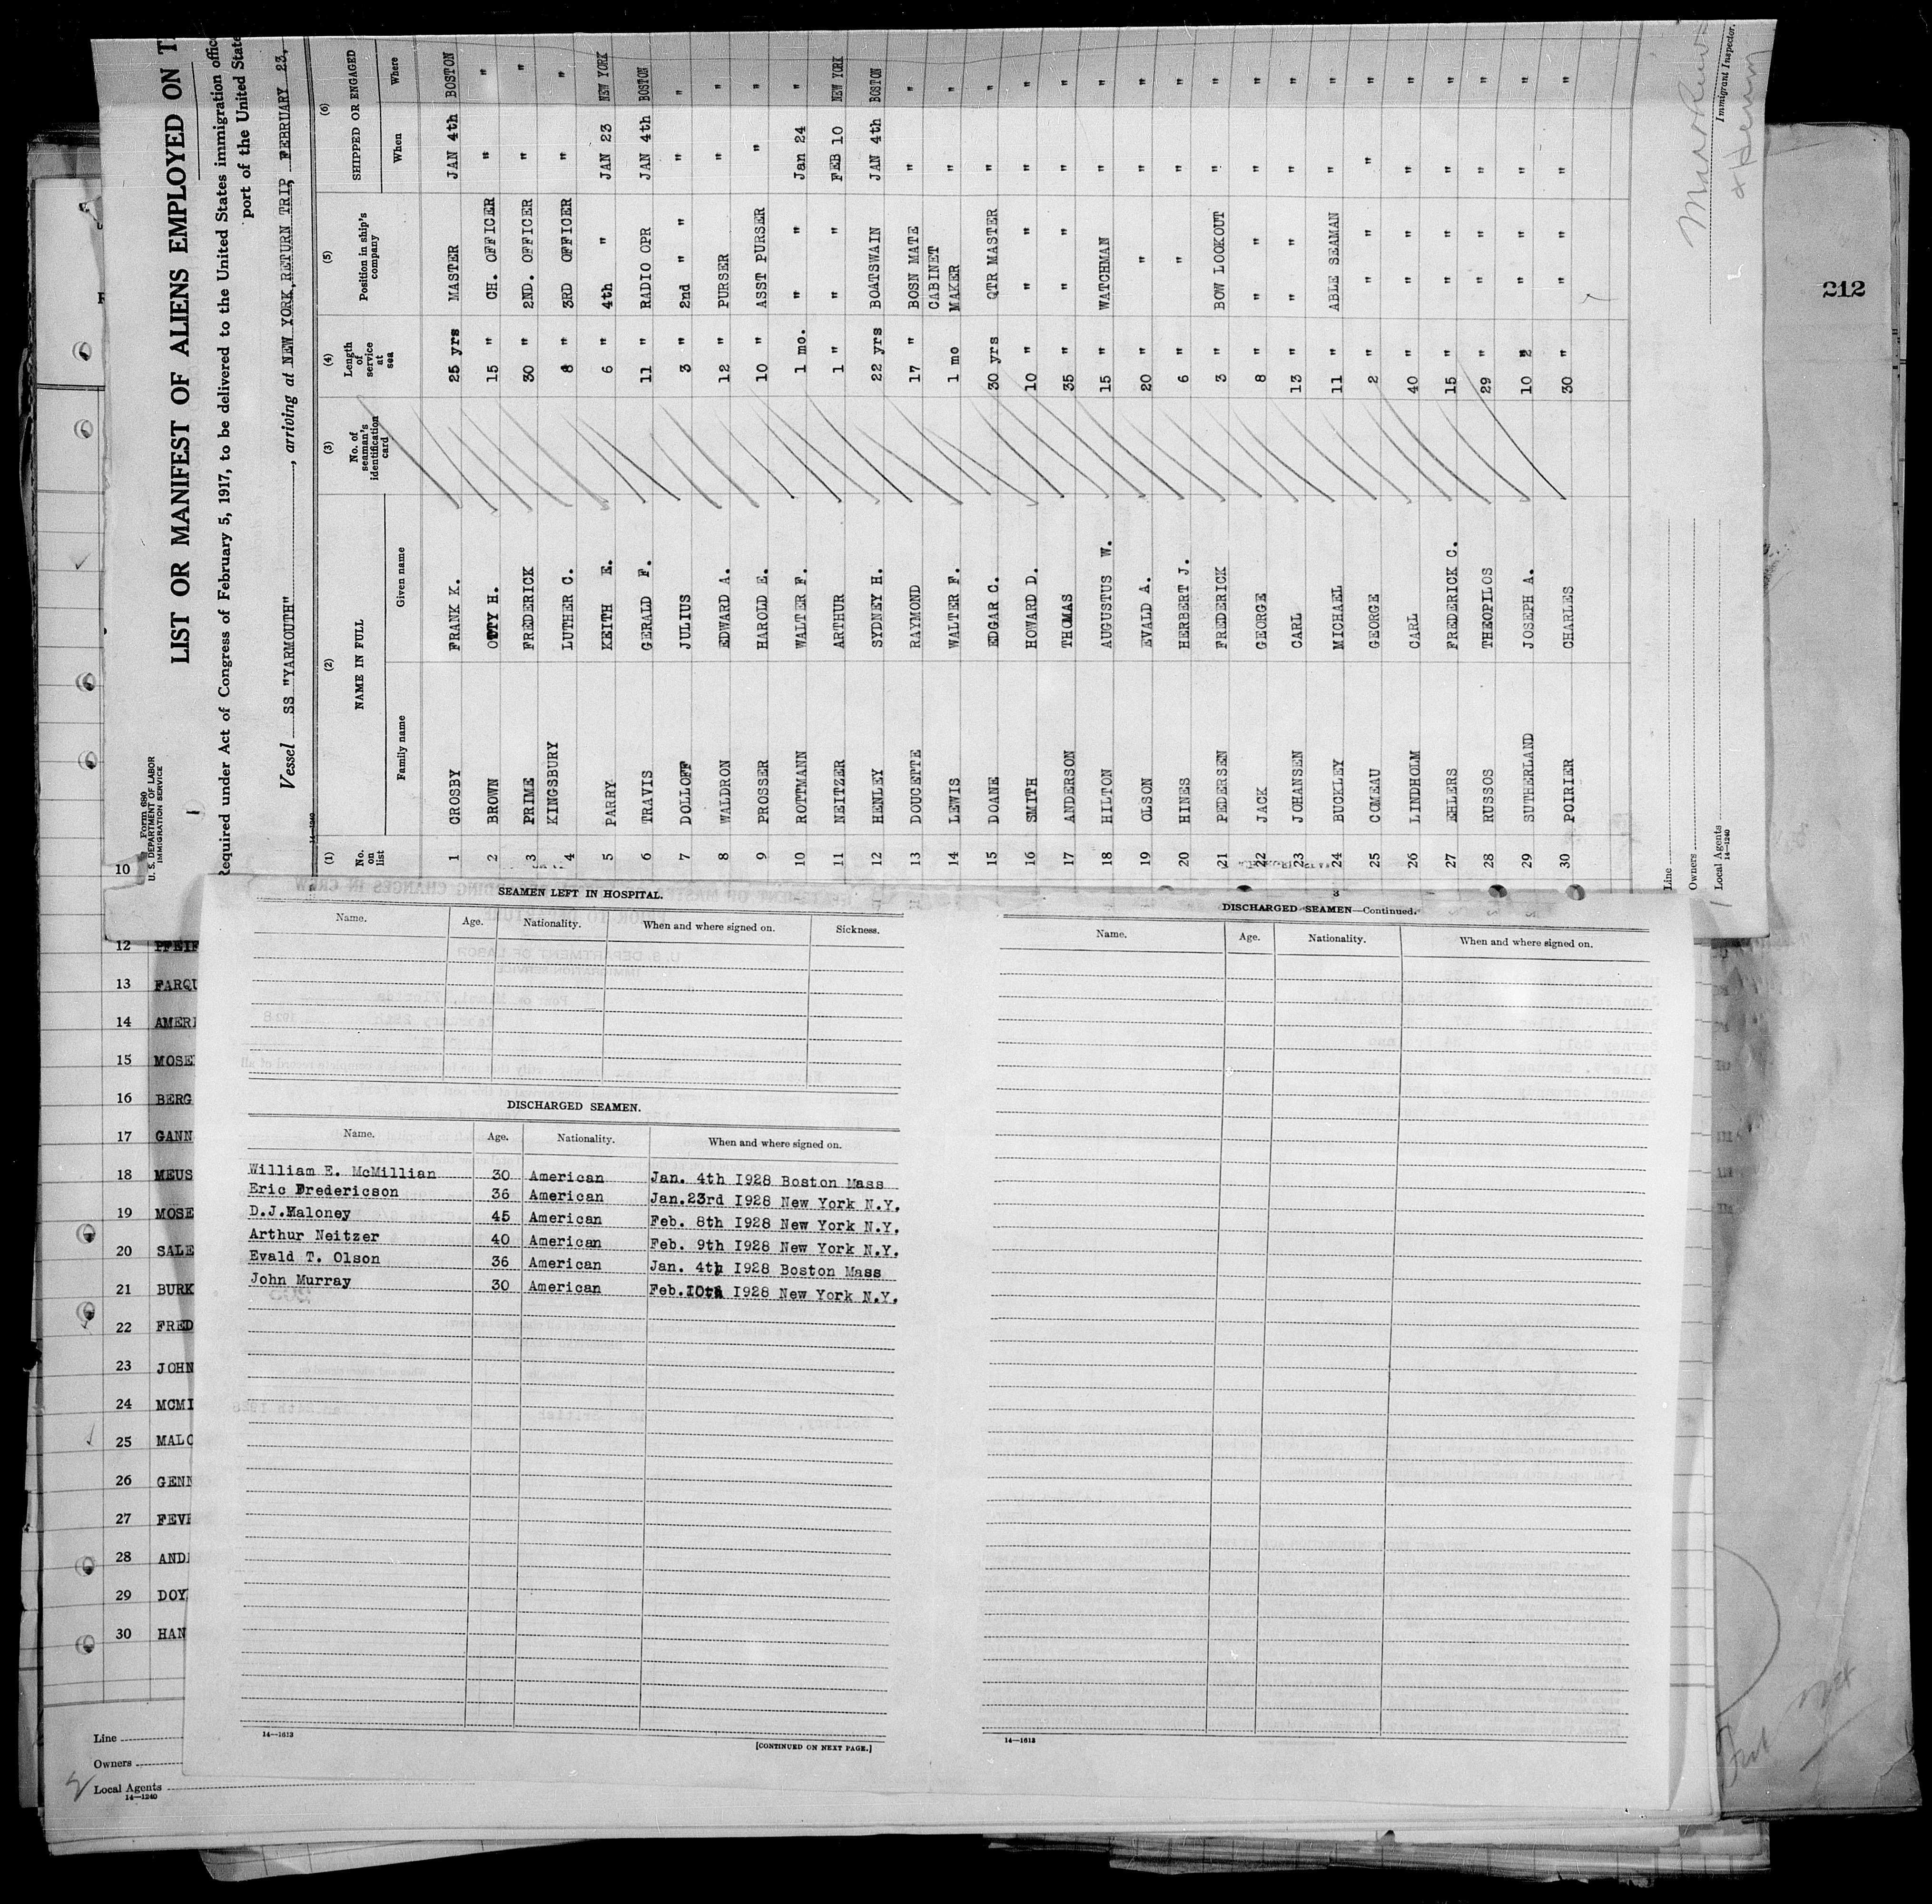 10
Form 680
U. S. DEPARTMENT OF LABOR
IMMIGRATION SERVICE
LIST OR MANIFEST OF ALIENS EMPLOYED ON
Required under Act of Congress of February 5, 1917, to be delivered to the United States immigration
port of the United
Vessel SS "YARMOUTH", arriving at NEW YORK, RETURN TRIP, FEBRUARY 23,
14—1240
(1) (2) (3) (4) (5) (6)
No. on list NAME IN FULL No. of seaman's identification card Length of service at sea Position in ship's company SHIPPED OR ENGAGED
Family name Given name When Where
1 CROSBY FRANK K. 25 yrs MASTER JAN 4th BOSTON
2 BROWN OTTY H. 15 " CH. OFFICER " "
3 PRIME FREDERICK 30 " 2ND. OFFICER " "
4 KINGSBURY LUTHER C. 8 " 3RD OFFICER " "
5 PARRY KEITH E. 6 " 4th " JAN 23 NEW YORK
6 TRAVIS GERALD F. 11 " RADIO OPR JAN 4th BOSTON
7 DOLLOFF JULIUS 3 " 2nd " " " "
8 WALDRON EDWARD A. 12 " PURSER " "
9 PROSSER HAROLD E. 10 " ASST PURSER " "
10 ROTTMANN WALTER F. 1 mo. " " Jan 24 "
11 NEITZER ARTHUR 1 " " " FEB 10 NEW YORK
12 HENLEY SYDNEY H. 22 yrs BOATSWAIN JAN 4th BOSTON
13 DOUCETTE RAYMOND 17 " BOSN MATE " "
14 LEWIS WALTER F. 1 mo CABINET MAKER " "
15 DOANE EDGAR C. 30 yrs QTR MASTER " "
16 SMITH HOWARD D. 10 " " " " "
17 ANDERSON THOMAS 35 " " " " "
18 HILTON AUGUSTUS W. 15 " WATCHMAN " "
19 OLSON EVALD A. 20 " " " "
20 HINES HERBERT J. 6 " " " "
21 PEDERSEN FREDERICK 3 " BOW LOOKOUT " "
22 JACK GEORGE 8 " " " " "
23 JOHANSEN CARL 13 " " " " "
24 BUCKLEY MICHAEL 11 " ABLE SEAMAN " "
25 COMEAU GEORGE 2 " " " " "
26 LINDHOLM CARL 40 " " " " "
27 EHLERS FREDERICK C. 15 " " " " "
28 RUSSOS THEOPILOS 29 " " " " "
29 SUTHERLAND JOSEPH A. 10 " " " " "
30 POIRIER CHARLES 30 " " " " "
Line
Owners
Local Agents
14—1240
Immigrant Inspector.
212
SEAMEN LEFT IN HOSPITAL.
Name. Age. Nationality. When and where signed on. Sickness.
DISCHARGED SEAMEN.
Name. Age. Nationality. When and where signed on.
William E. McMillian 30 American Jan. 4th 1928 Boston Mass
Eric Fredericson 36 American Jan.23rd 1928 New York N.Y.
D.J.Maloney 45 American Feb. 8th 1928 New York N.Y.
Arthur Neitzer 40 American Feb. 9th 1928 New York N.Y.
Evald T. Olson 36 American Jan. 4th 1928 Boston Mass
John Murray 30 American Feb.10th 1928 New York N.Y.
14—1613
[CONTINUED ON NEXT PAGE.]
3
DISCHARGED SEAMEN—Continued.
Name. Age. Nationality. When and where signed on.
14—1613
12 PFEIF
13 FARQU
14 AMERI
15 MOSE
16 BERG
17 GANN
18 MEUS
19 MOSE
20 SALE
21 BURK
22 FRED
23 JOHN
24 MCMI
25 MALO
26 GENN
27 FEVE
28 AND
29 DOY
30 HAN
Line
Owners
Local Agents
14—1240